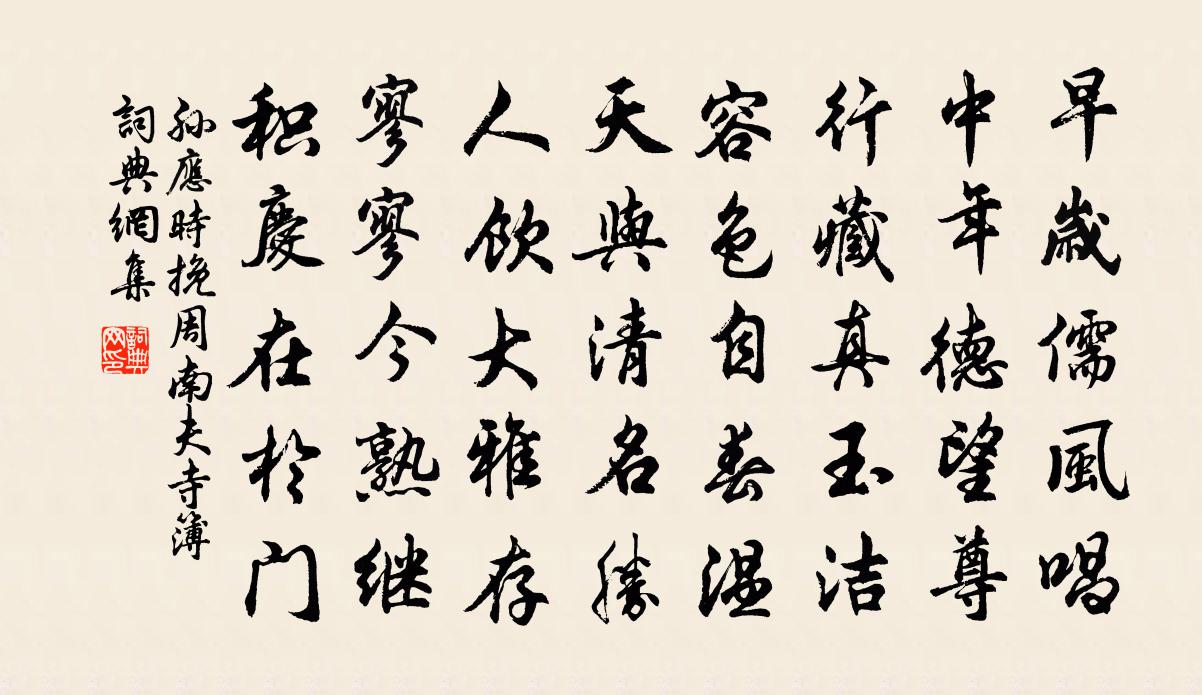 早歲儒風唱
中年德望尊
行藏真玉洁
容色自春温
天與清名勝
人飲大雅存
寥寥今熟继
积慶在於门
孙應時挽周南夫寺簿
詞典網集
詞典
网印